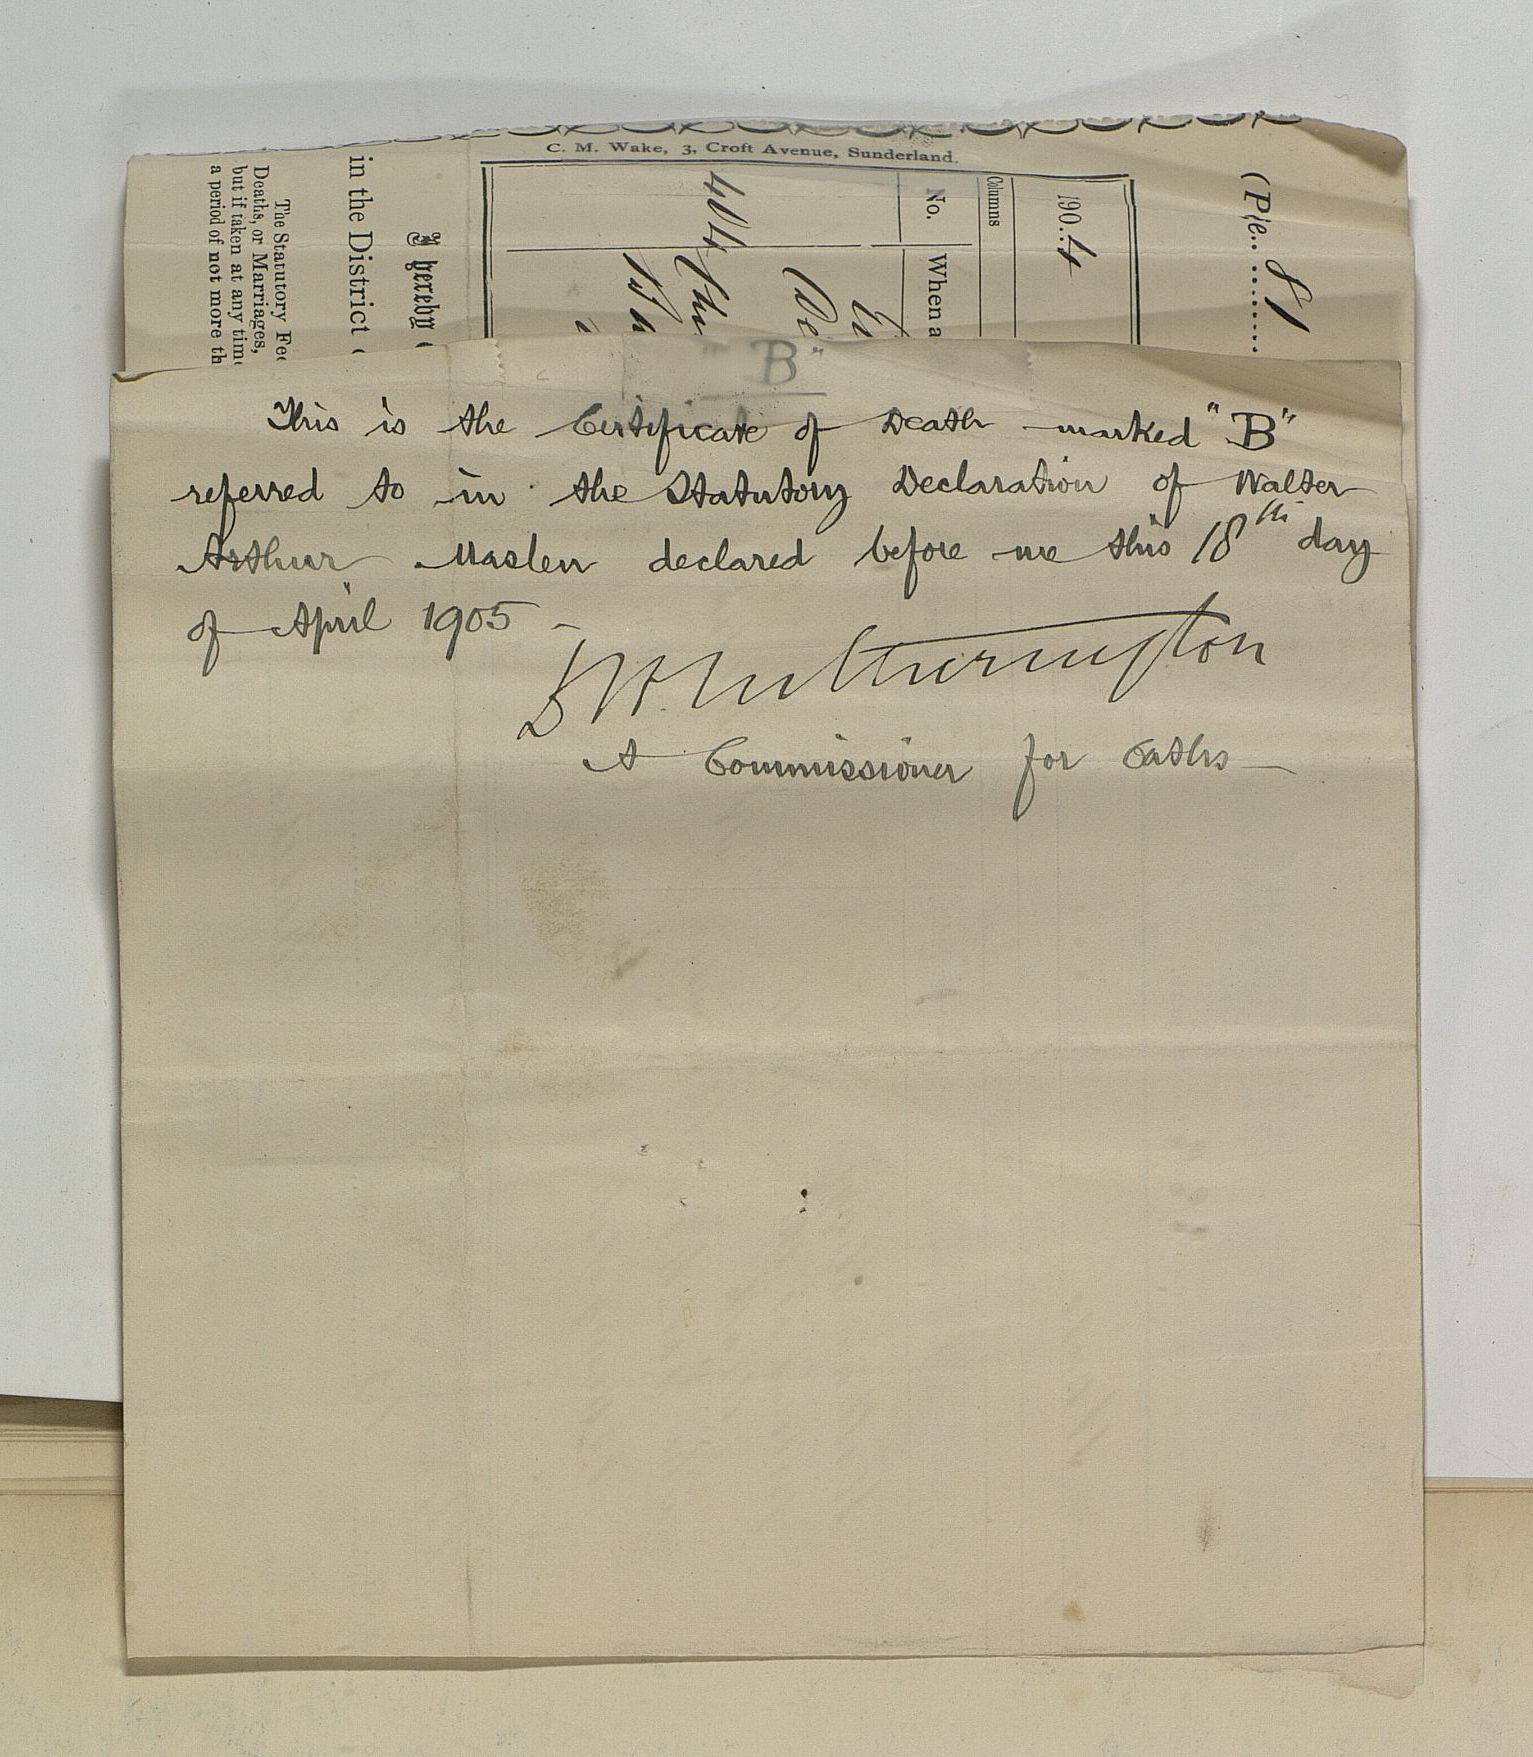 C. M. Wake, 3, Croft Avenue, Sunderland.
(Pie.. 81
190.4
Columns
No.
When a
404
I hereby
in the District
The Statutory Fee
Deaths, or Marriages,
but if taken at any time
a period of not more th
"B"
This is the Certificate of Death marked "B"
referred to in the Statutory Declaration of Walter
Arthur Maslen declared before me this 18th day
of April 1905 –
A Commissioner for Oaths –